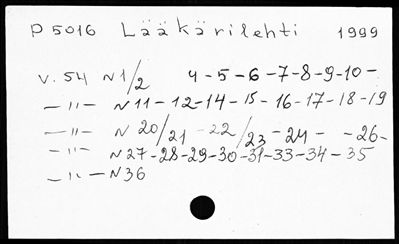 P 5016 Lääkärilehti 1999
V. 54 N 1/2 4-5-6-7-8-9-10-
-"- N 11-12-14-15-16-17-18-19
-"- N 20/21 -22/23 -24- -26-
-"- N 27-28-29-30-31-33-34-35
-"- N 36